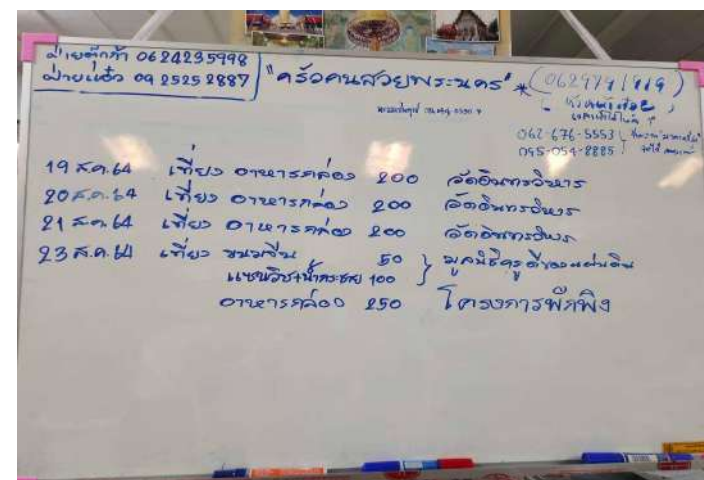 ฝ่ายตุ๊กตา 0624235998
ฝ่ายแต๋ว 0925252887
"ครัวคนสวยพระนคร" * (0629791919)
062-676-5553
095-054-8885
19 ส.ค. 64 เที่ยง อาหารกล่อง 200 วัดอินทรวิหาร
20 ส.ค. 64 เที่ยง อาหารกล่อง 200 วัดอินทรวิหาร
21 ส.ค. 64 เที่ยง อาหารกล่อง 200 วัดอินทรวิหาร
23 ส.ค. 64 เที่ยง ขนมจีน 50 } มูลนิธิครูดีของแผ่นดิน
แซนวิช+น้ำกระชาย 100
อาหารกล่อง 250 โครงการพักพิง